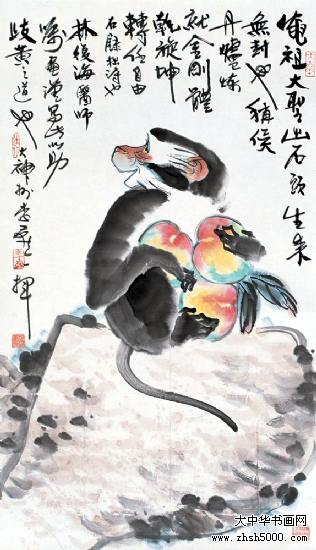 俺祖大聖石頭生來
無封也猶侯
丹爐煉
就金剛體
乾旋坤
轉任自由
石詩也
林後海醫師
畫此助
歧黃之道也
大神州李燕揮
大中华书画网
www.zhsh5000.com